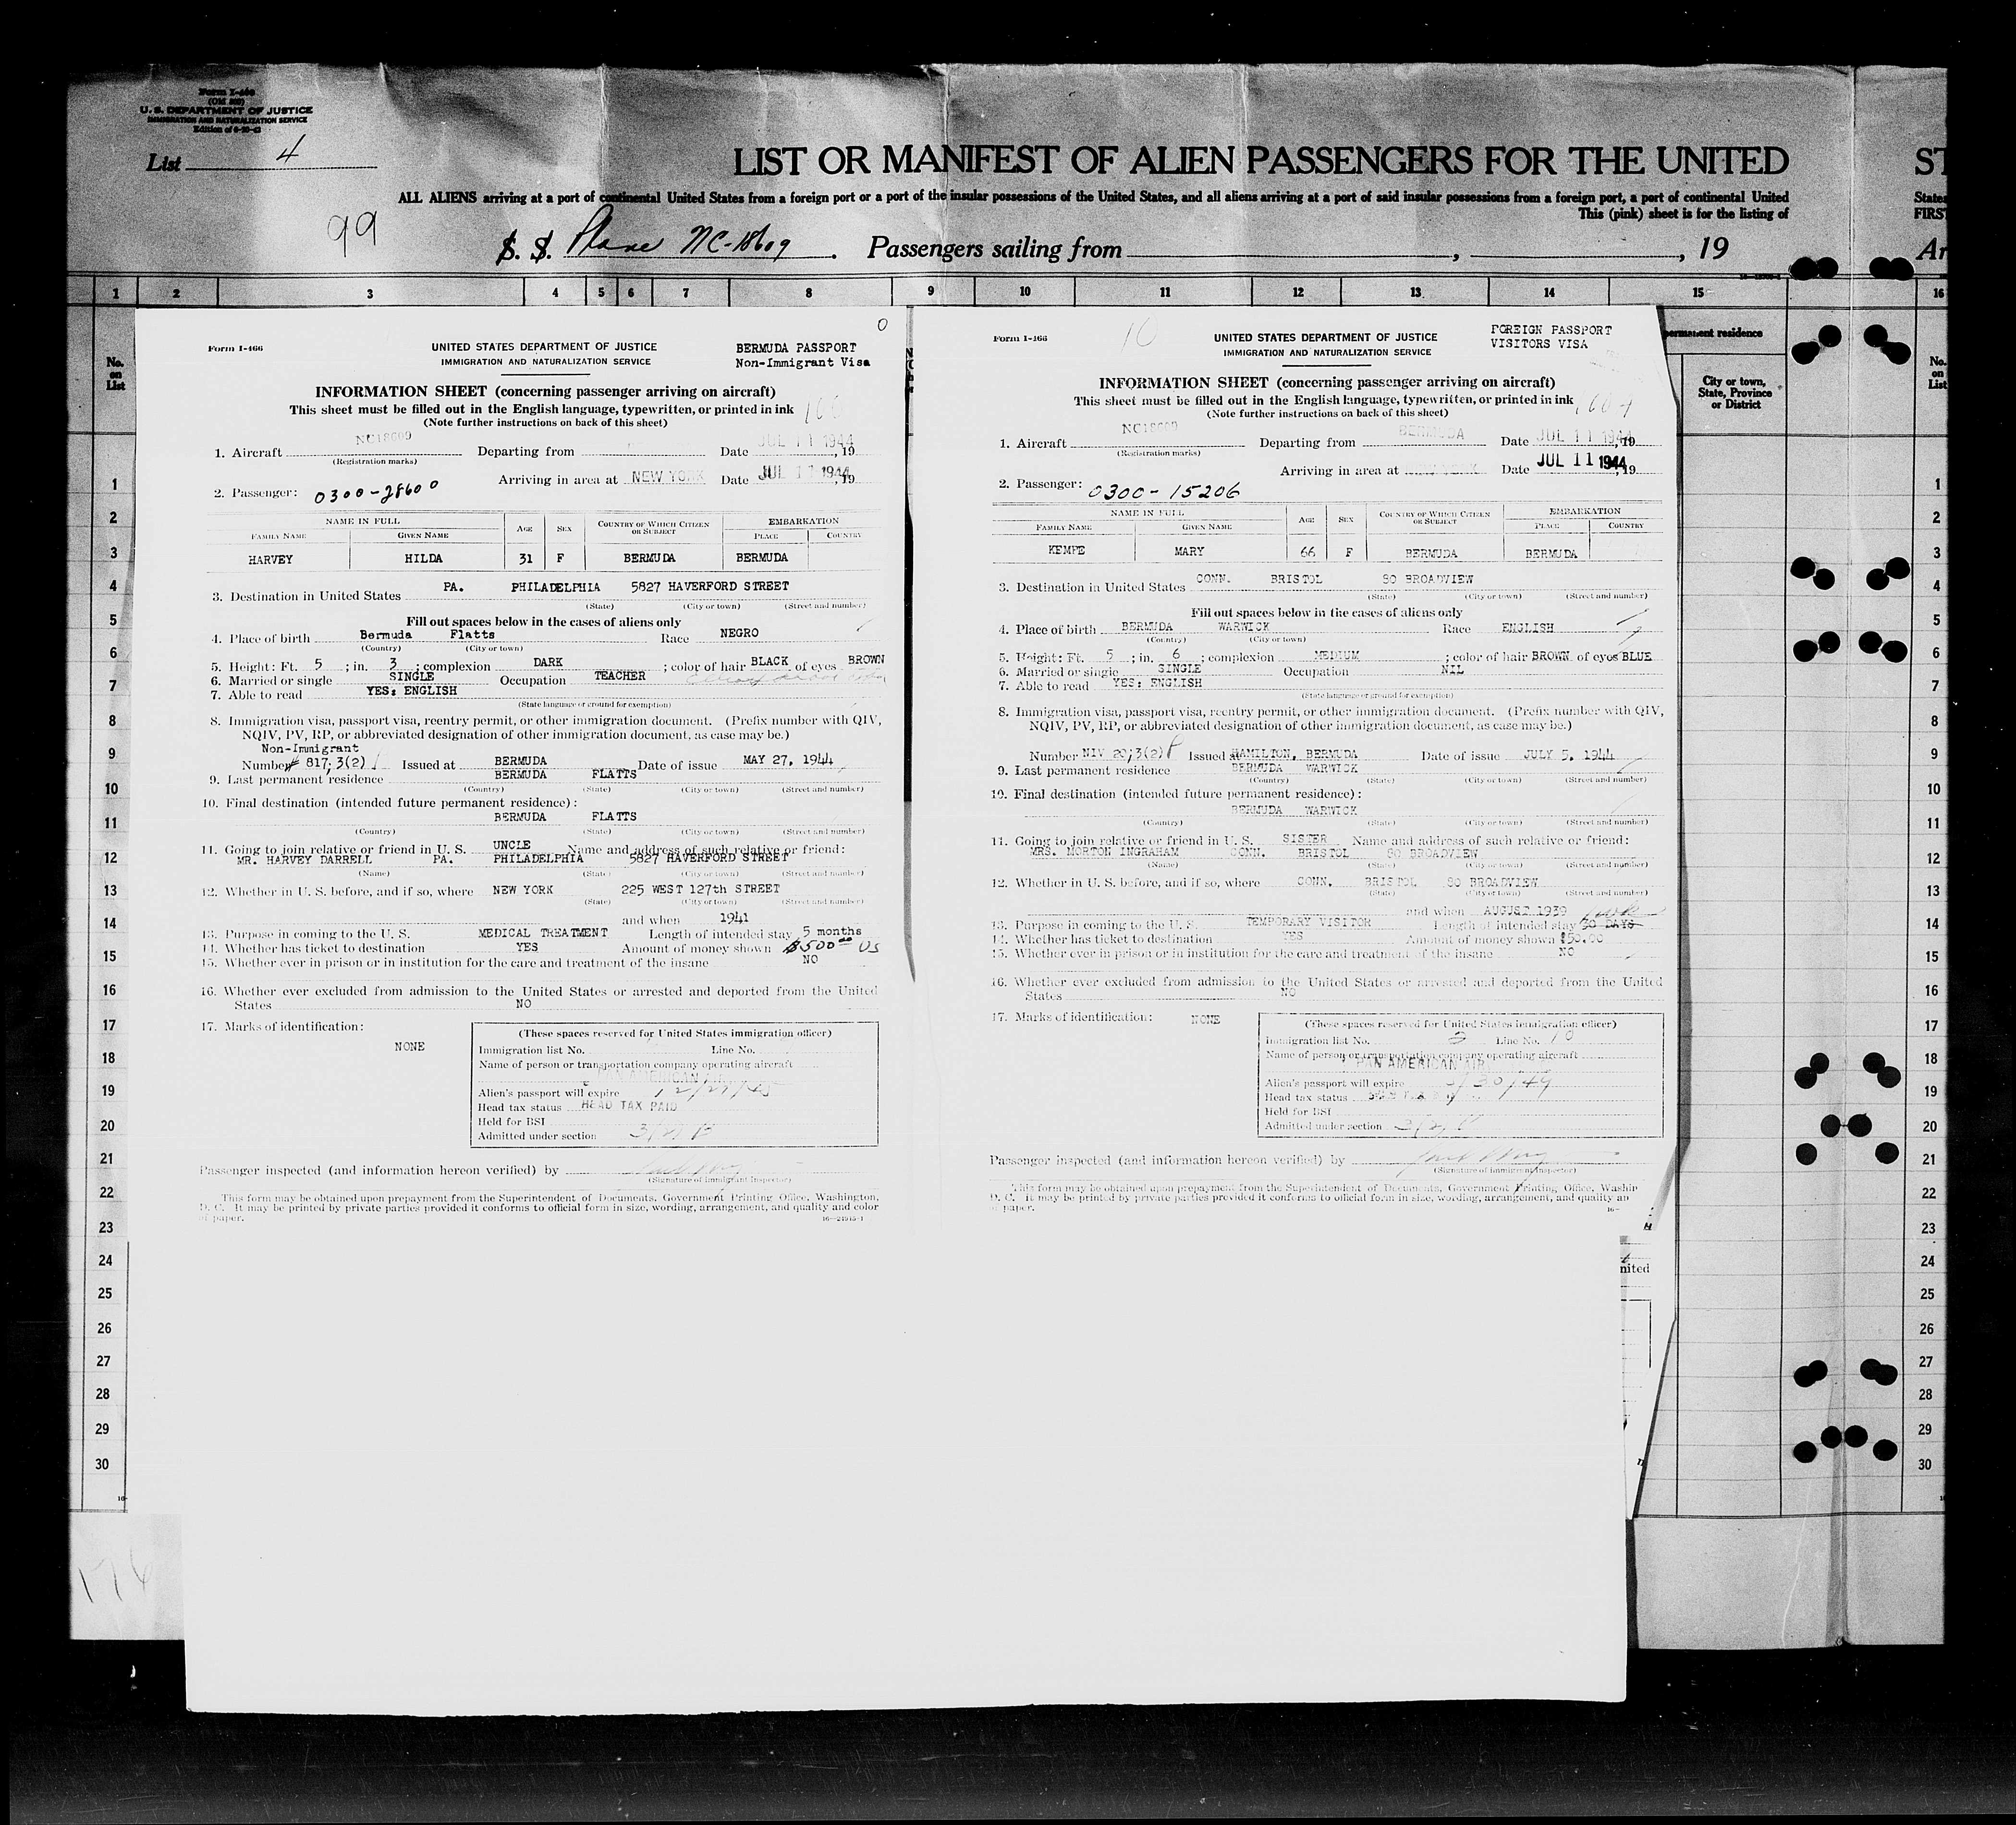 Form I-466
(Old 500)
U. S. DEPARTMENT OF JUSTICE
IMMIGRATION AND NATURALIZATION SERVICE
List 4
LIST OR MANIFEST OF ALIEN PASSENGERS FOR THE UNITED
ST
ALL ALIENS arriving at a port of continental United States from a foreign port or a port of the insular possessions of the United States, and all aliens arriving at a port of said insular possessions from a foreign port, a port of continental United
States
This (pink) sheet is for the listing of
FIRST
99
S. S. Plane NC-18609. Passengers sailing from , , 19
Ar
1 2 3 4 5 6 7 8 9 10 11 12 13 14 15 16
No. on List
permanent residence
City or town, State, Province or District
No. on List
1
2
3
4
5
6
7
8
9
10
11
12
13
14
15
16
17
18
19
20
21
22
23
24
25
26
27
28
29
30
Form I-466
UNITED STATES DEPARTMENT OF JUSTICE
IMMIGRATION AND NATURALIZATION SERVICE
BERMUDA PASSPORT
Non-Immigrant Visa
INFORMATION SHEET (concerning passenger arriving on aircraft)
This sheet must be filled out in the English language, typewritten, or printed in ink
(Note further instructions on back of this sheet)
1. Aircraft NC18609 Departing from Date JUL 11 1944, 19
(Registration marks)
Arriving in area at NEW YORK Date JUL 11 1944, 19
2. Passenger: 0300-28600
NAME IN FULL AGE SEX COUNTRY OF WHICH CITIZEN OR SUBJECT EMBARKATION
FAMILY NAME GIVEN NAME PLACE COUNTRY
HARVEY HILDA 31 F BERMUDA BERMUDA
3. Destination in United States PA. PHILADELPHIA 5827 HAVERFORD STREET
(State) (City or town) (Street and number)
Fill out spaces below in the cases of aliens only
4. Place of birth Bermuda Flatts Race NEGRO
(Country) (City or town)
5. Height: Ft. 5 ; in. 3 ; complexion DARK ; color of hair BLACK of eyes BROWN
6. Married or single SINGLE Occupation TEACHER
7. Able to read YES: ENGLISH
(State language or ground for exemption)
8. Immigration visa, passport visa, reentry permit, or other immigration document. (Prefix number with QIV,
NQIV, PV, RP, or abbreviated designation of other immigration document, as case may be.)
Non-Immigrant
Number # 817; 3(2) Issued at BERMUDA Date of issue MAY 27, 1944
9. Last permanent residence BERMUDA FLATTS
(Country) (State) (City or town) (Street and number)
10. Final destination (intended future permanent residence):
BERMUDA FLATTS
(Country) (State) (City or town) (Street and number)
11. Going to join relative or friend in U. S. UNCLE Name and address of such relative or friend:
MR. HARVEY DARRELL PA. PHILADELPHIA 5827 HAVERFORD STREET
(Name) (State) (City or town) (Street and number)
12. Whether in U. S. before, and if so, where NEW YORK 225 WEST 127th STREET
(State) (City or town) (Street and number)
and when 1941
13. Purpose in coming to the U. S. MEDICAL TREATMENT Length of intended stay 5 months
14. Whether has ticket to destination YES Amount of money shown $500.00 US
15. Whether ever in prison or in institution for the care and treatment of the insane NO
16. Whether ever excluded from admission to the United States or arrested and deported from the United
States NO
17. Marks of identification:
NONE
(These spaces reserved for United States immigration officer)
Immigration list No. Line No.
Name of person or transportation company operating aircraft
PAN AMERICAN
Alien's passport will expire
Head tax status HEAD TAX PAID
Held for BSI
Admitted under section 3(2)
Passenger inspected (and information hereon verified) by
(Signature of Immigrant Inspector)
This form may be obtained upon prepayment from the Superintendent of Documents, Government Printing Office, Washington,
D. C. It may be printed by private parties provided it conforms to official form in size, wording, arrangement, and quality and color
of paper.
Form I-466
10
UNITED STATES DEPARTMENT OF JUSTICE
IMMIGRATION AND NATURALIZATION SERVICE
FOREIGN PASSPORT
VISITORS VISA
INFORMATION SHEET (concerning passenger arriving on aircraft)
This sheet must be filled out in the English language, typewritten, or printed in ink
(Note further instructions on back of this sheet)
1. Aircraft NC18609 Departing from BERMUDA Date JUL 11 1944, 19
(Registration marks)
Arriving in area at NEW YORK Date JUL 11 1944, 19
2. Passenger: 0300-15206
NAME IN FULL AGE SEX COUNTRY OF WHICH CITIZEN OR SUBJECT EMBARKATION
FAMILY NAME GIVEN NAME PLACE COUNTRY
KEMPE MARY 66 F BERMUDA BERMUDA
3. Destination in United States CONN. BRISTOL 80 BROADVIEW
(State) (City or town) (Street and number)
Fill out spaces below in the cases of aliens only
4. Place of birth BERMUDA WARWICK Race ENGLISH
(Country) (City or town)
5. Height: Ft. 5 ; in. 6 ; complexion MEDIUM ; color of hair BROWN of eyes BLUE
6. Married or single SINGLE Occupation NIL
7. Able to read YES: ENGLISH
(State language or ground for exemption)
8. Immigration visa, passport visa, reentry permit, or other immigration document. (Prefix number with QIV,
NQIV, PV, RP, or abbreviated designation of other immigration document, as case may be.)
Number NIV 20; 3(2) Issued at HAMILTON, BERMUDA Date of issue JULY 5, 1944
9. Last permanent residence BERMUDA WARWICK
(Country) (State) (City or town) (Street and number)
10. Final destination (intended future permanent residence):
BERMUDA WARWICK
(Country) (State) (City or town) (Street and number)
11. Going to join relative or friend in U. S. SISTER Name and address of such relative or friend:
MRS. MORTON INGRAHAM CONN. BRISTOL 80 BROADVIEW
(Name) (State) (City or town) (Street and number)
12. Whether in U. S. before, and if so, where CONN. BRISTOL 80 BROADVIEW
(State) (City or town) (Street and number)
and when AUGUST 1939
13. Purpose in coming to the U. S. TEMPORARY VISITOR Length of intended stay 30 DAYS
14. Whether has ticket to destination YES Amount of money shown $50.00
15. Whether ever in prison or in institution for the care and treatment of the insane NO
16. Whether ever excluded from admission to the United States or arrested and deported from the United
States NO
17. Marks of identification: NONE
(These spaces reserved for United States immigration officer)
Immigration list No. 3 Line No. 10
Name of person or transportation company operating aircraft
PAN AMERICAN AIR
Alien's passport will expire
Head tax status
Held for BSI
Admitted under section 3(2)
Passenger inspected (and information hereon verified) by
(Signature of Immigrant Inspector)
This form may be obtained upon prepayment from the Superintendent of Documents, Government Printing Office, Washin
D. C. It may be printed by private parties provided it conforms to official form in size, wording, arrangement, and quality an
of paper.
nited
1
2
3
4
5
6
7
8
9
10
11
12
13
14
15
16
17
18
19
20
21
22
23
24
25
26
27
28
29
30